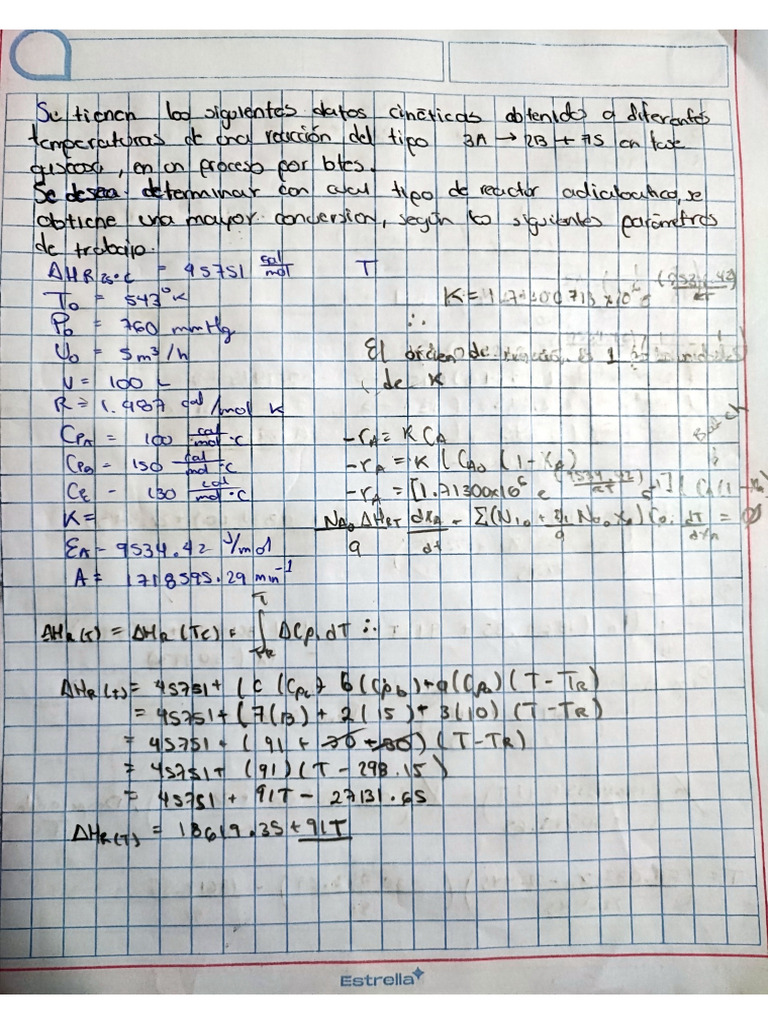 Se tienen los siguientes datos cinéticas obtenido a diferentes
temperaturas de una reacción del tipo 3A → 2B + 7S en fase
gaseosa, en un proceso por lotes.
Se desea determinar con cual tipo de reactor adiabatico, se
obtiene una mayor conversion, según los siguientes parámetros
de trabajo.
ΔHR 25°C = 45751 cal/mol T
T0 = 543°K
P0 = 760 mmHg
U0 = 5 m³/h
V = 100 L
R = 1.987 cal/mol K
CPA = 100 cal/mol °C
CPB = 150 cal/mol °C
130 cal/mol °C
K =
EA = 9534.42 J/mol
A = 1718595.29 min⁻¹
∴
El orden de
de K
-rA = K CA
-rA = K (CA0 (1-XA)
ΔHR(T) = ΔHR (TC) = ∫ ΔCp, dT ∴
ΔHR(T) = 45751 + (C (CPC) + b (CPb) + a (CPa) (T - TR)
= 45751 + (7(13) + 2(15) + 3(10) (T - TR)
= 45751 + (91 + 30 + 30) (T - TR)
= 45751 + (91) (T - 298.15)
= 45751 + 91T - 27131.65
ΔHR(T) = 18619.35 + 91T
Estrella